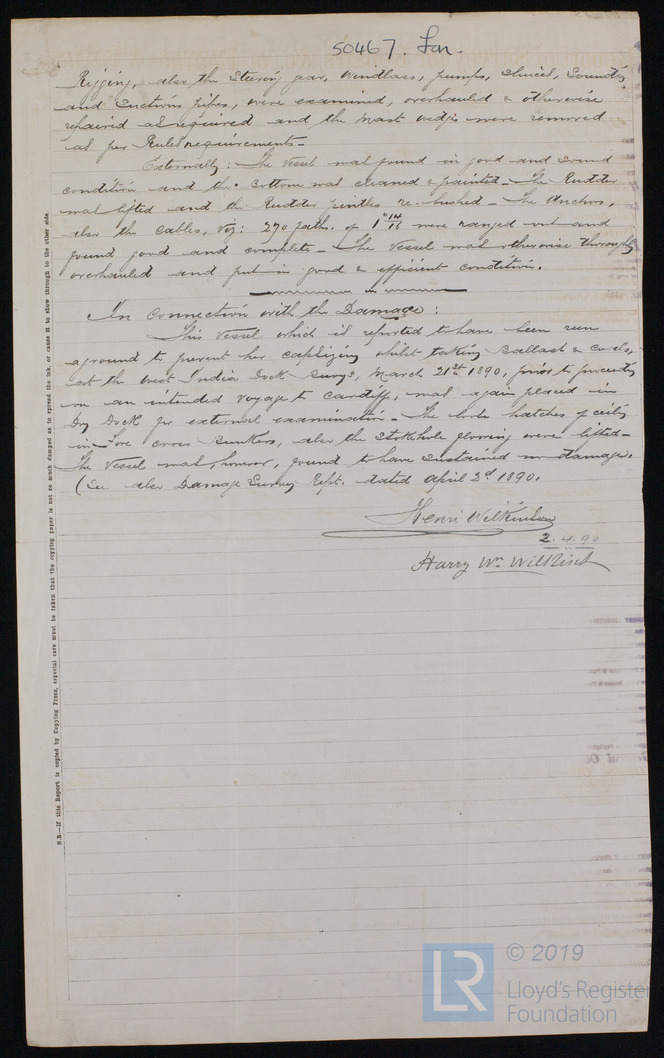 50467. Lon.
Rigging, also the Steering gear, Windlass, pumps, sluices, Sounding
and Suctions pipes, were examined, overhauled & otherwise
repaired as required and the Mast wedges were removed
as per Rules requirements -
Externally: The Vessel was found in good and sound
condition and the bottom was cleaned & painted - The Rudder
was lifted and the Rudder pintles re-bushed - The Anchors,
also the Cables, viz: 270 faths. of 1" 14/16 were ranged out and
found good and complete - The Vessel was otherwise thoroughly
overhauled and put in good & efficient condition.
In Connection with the Damage:
This Vessel which is reported to have been run
aground to prevent her capsizing whilst taking ballast & coals,
at the West India Dock Buoys, March 21st 1890, prior to proceeding
on an intended voyage to Cardiff, was again placed in
Dry Dock for external examination - The hatches of ceiling
in Fore cross Bunkers, also the Stokehole flooring were lifted -
The Vessel was, however, found to have sustained no damage.
(See also Damage Survey Rept. dated April 2d 1890.
Henri Wilkinson
2.4.90
Harry Wm Wilkins
N.B.—If this Report is copied by Copying Press, especial care must be taken that the copying paper is not so much damped as to spread the ink, or cause it to show through to the other side.
© 2019
LR
Lloyd's Register
Foundation